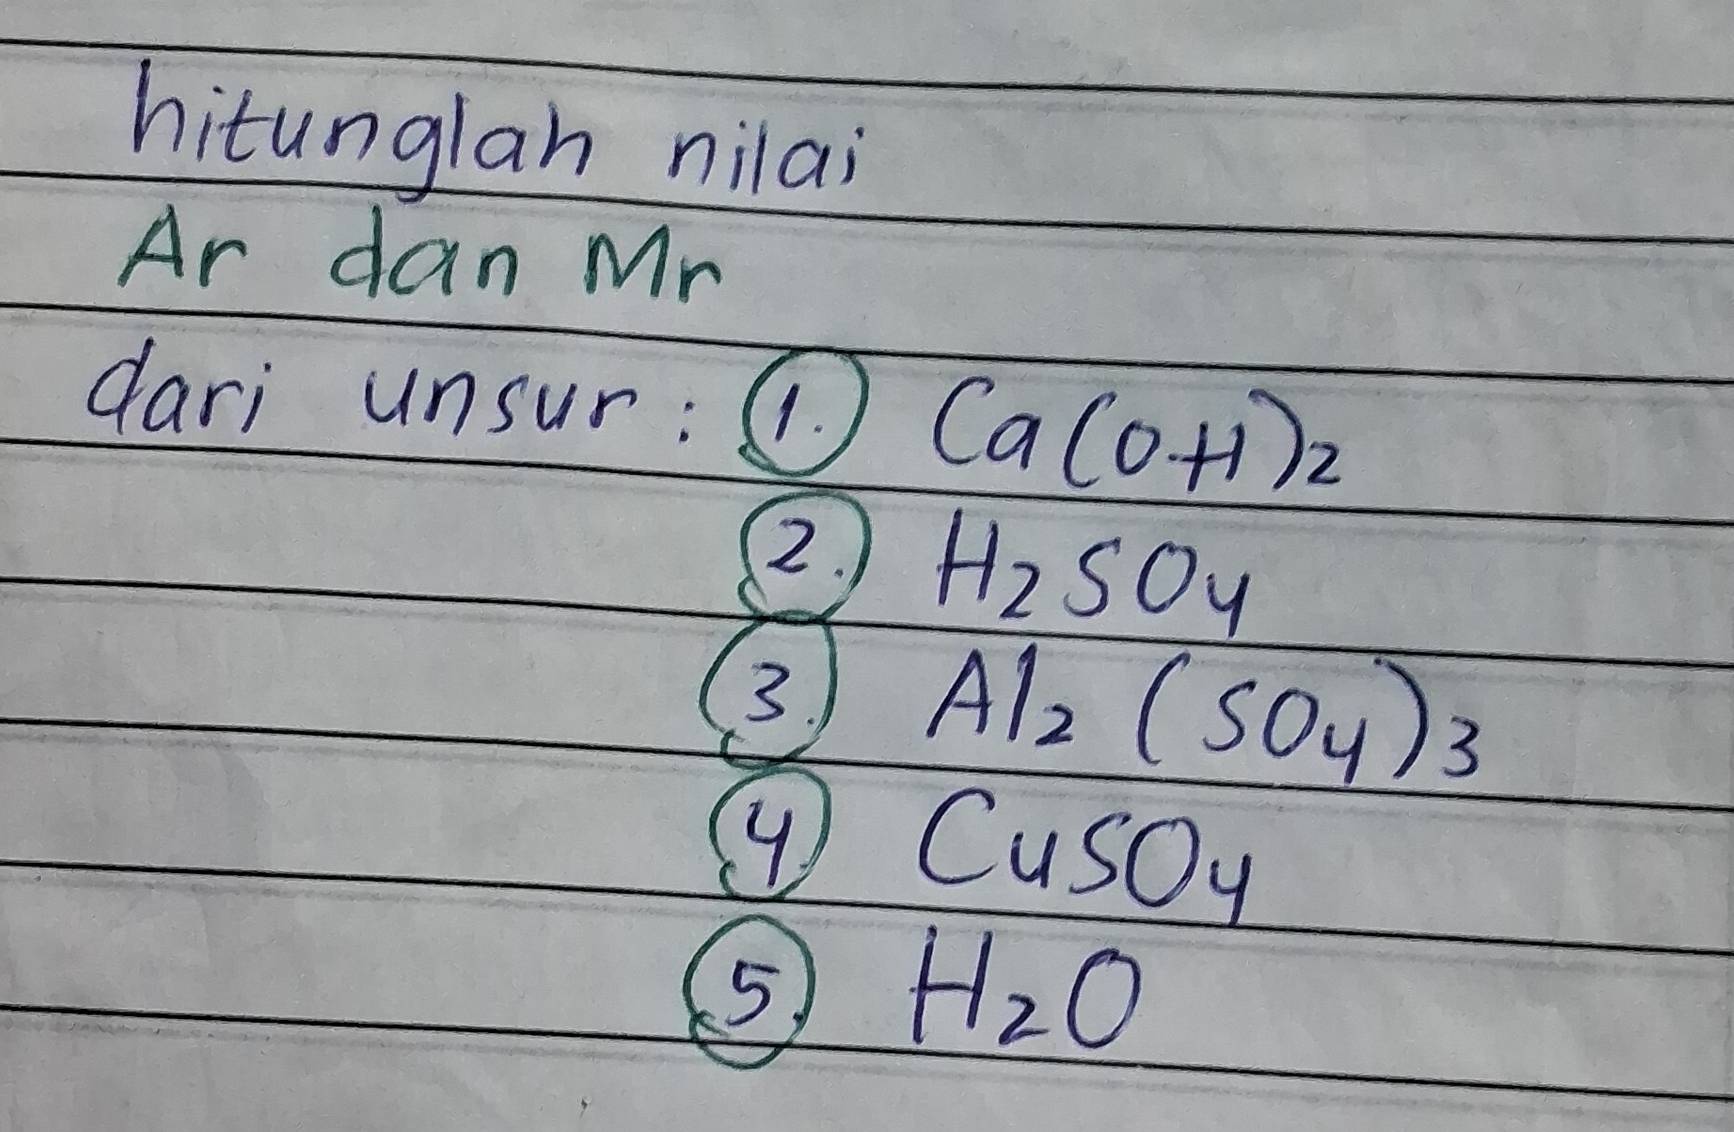 hitunglah nilai
Ar dan Mr
dari unsur: 1. Ca(OH)₂
2. H₂SO₄
3. Al₂(SO₄)₃
4. CuSO₄
5. H₂O